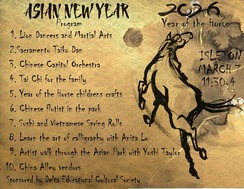 ASIAN NEW YEAR
2026
Program
Year of the Horse
1. Lion Dancers and Martial Arts
2. Sacramento Taiko Dan
3. Chinese Capitol Orchestra
4. Tai Chi for the family
5. Year of the Horse children crafts
6. Chinese flutist in the park
7. Sushi and Vietnamese Spring Rolls
8. Learn the art of calligraphy with Anita Lo
9. Artist walk through the Asian Park with Yoshi Taylor
10. China Alley vendors
Sponsored by Delta Educational Cultural Society
ISLETON
MARCH 7
11:30-4